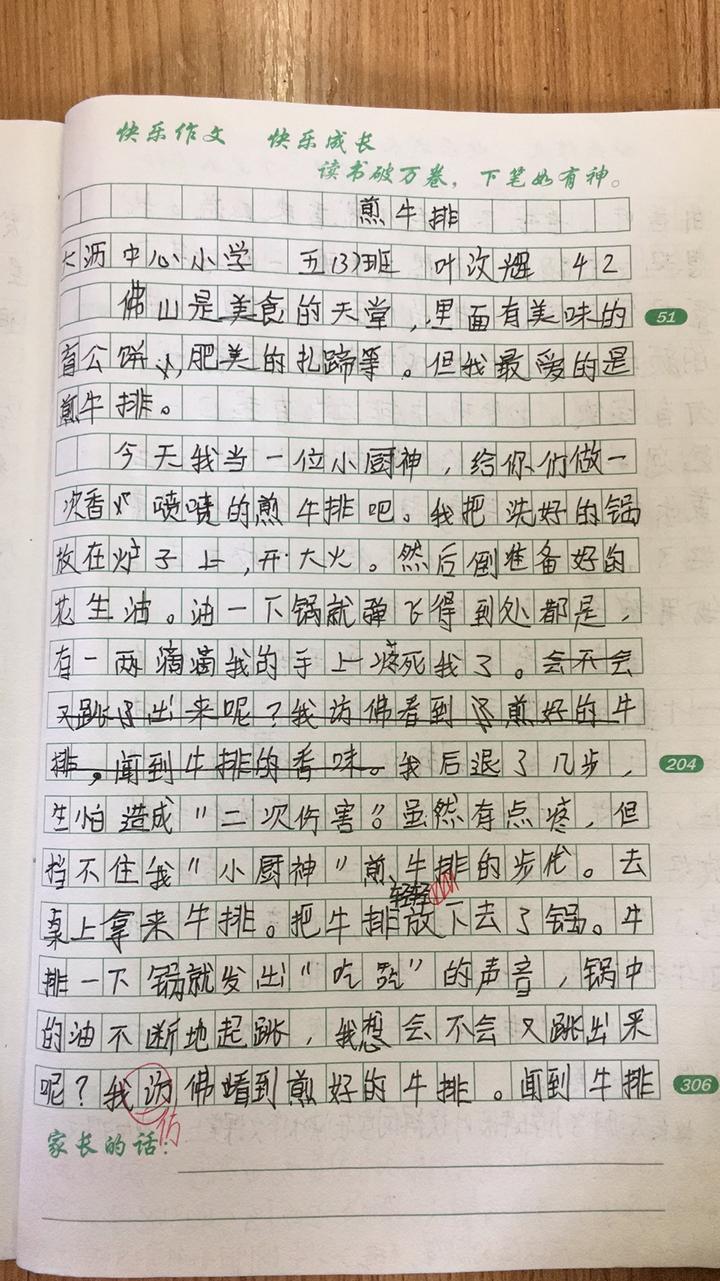 快乐作文 快乐成长
读书破万卷，下笔如有神。
煎牛排
大沥中心小学 五(3)班 叶汶娌 42
佛山是美食的天堂，里面有美味的 51
盲公饼、肥美的扎蹄等。但我最爱的是
煎牛排。
今天我当一位小厨神，给你们做一
次香 喷喷的煎牛排吧。我把洗好的锅
放在炉子上，开大火。然后倒准备好的
花生油。油一下锅就弹飞得到处都是，
有一两滴滴我的手上疼死我了。会不会
又跳了出来呢？我访佛看到了煎好的牛
排，闻到牛排的香味。我后退了几步， 204
生怕造成"二次伤害"。虽然有点疼，但
挡不住我"小厨神"煎牛排的步伐。去
桌上拿来牛排。把牛排轻轻放下去了锅。牛
排一下锅就发出"吃 "的声音，锅中
的油不断地起跳，我想会不会又跳出来
呢？我访佛看到煎好的牛排。闻到牛排 306
仿
家长的话：